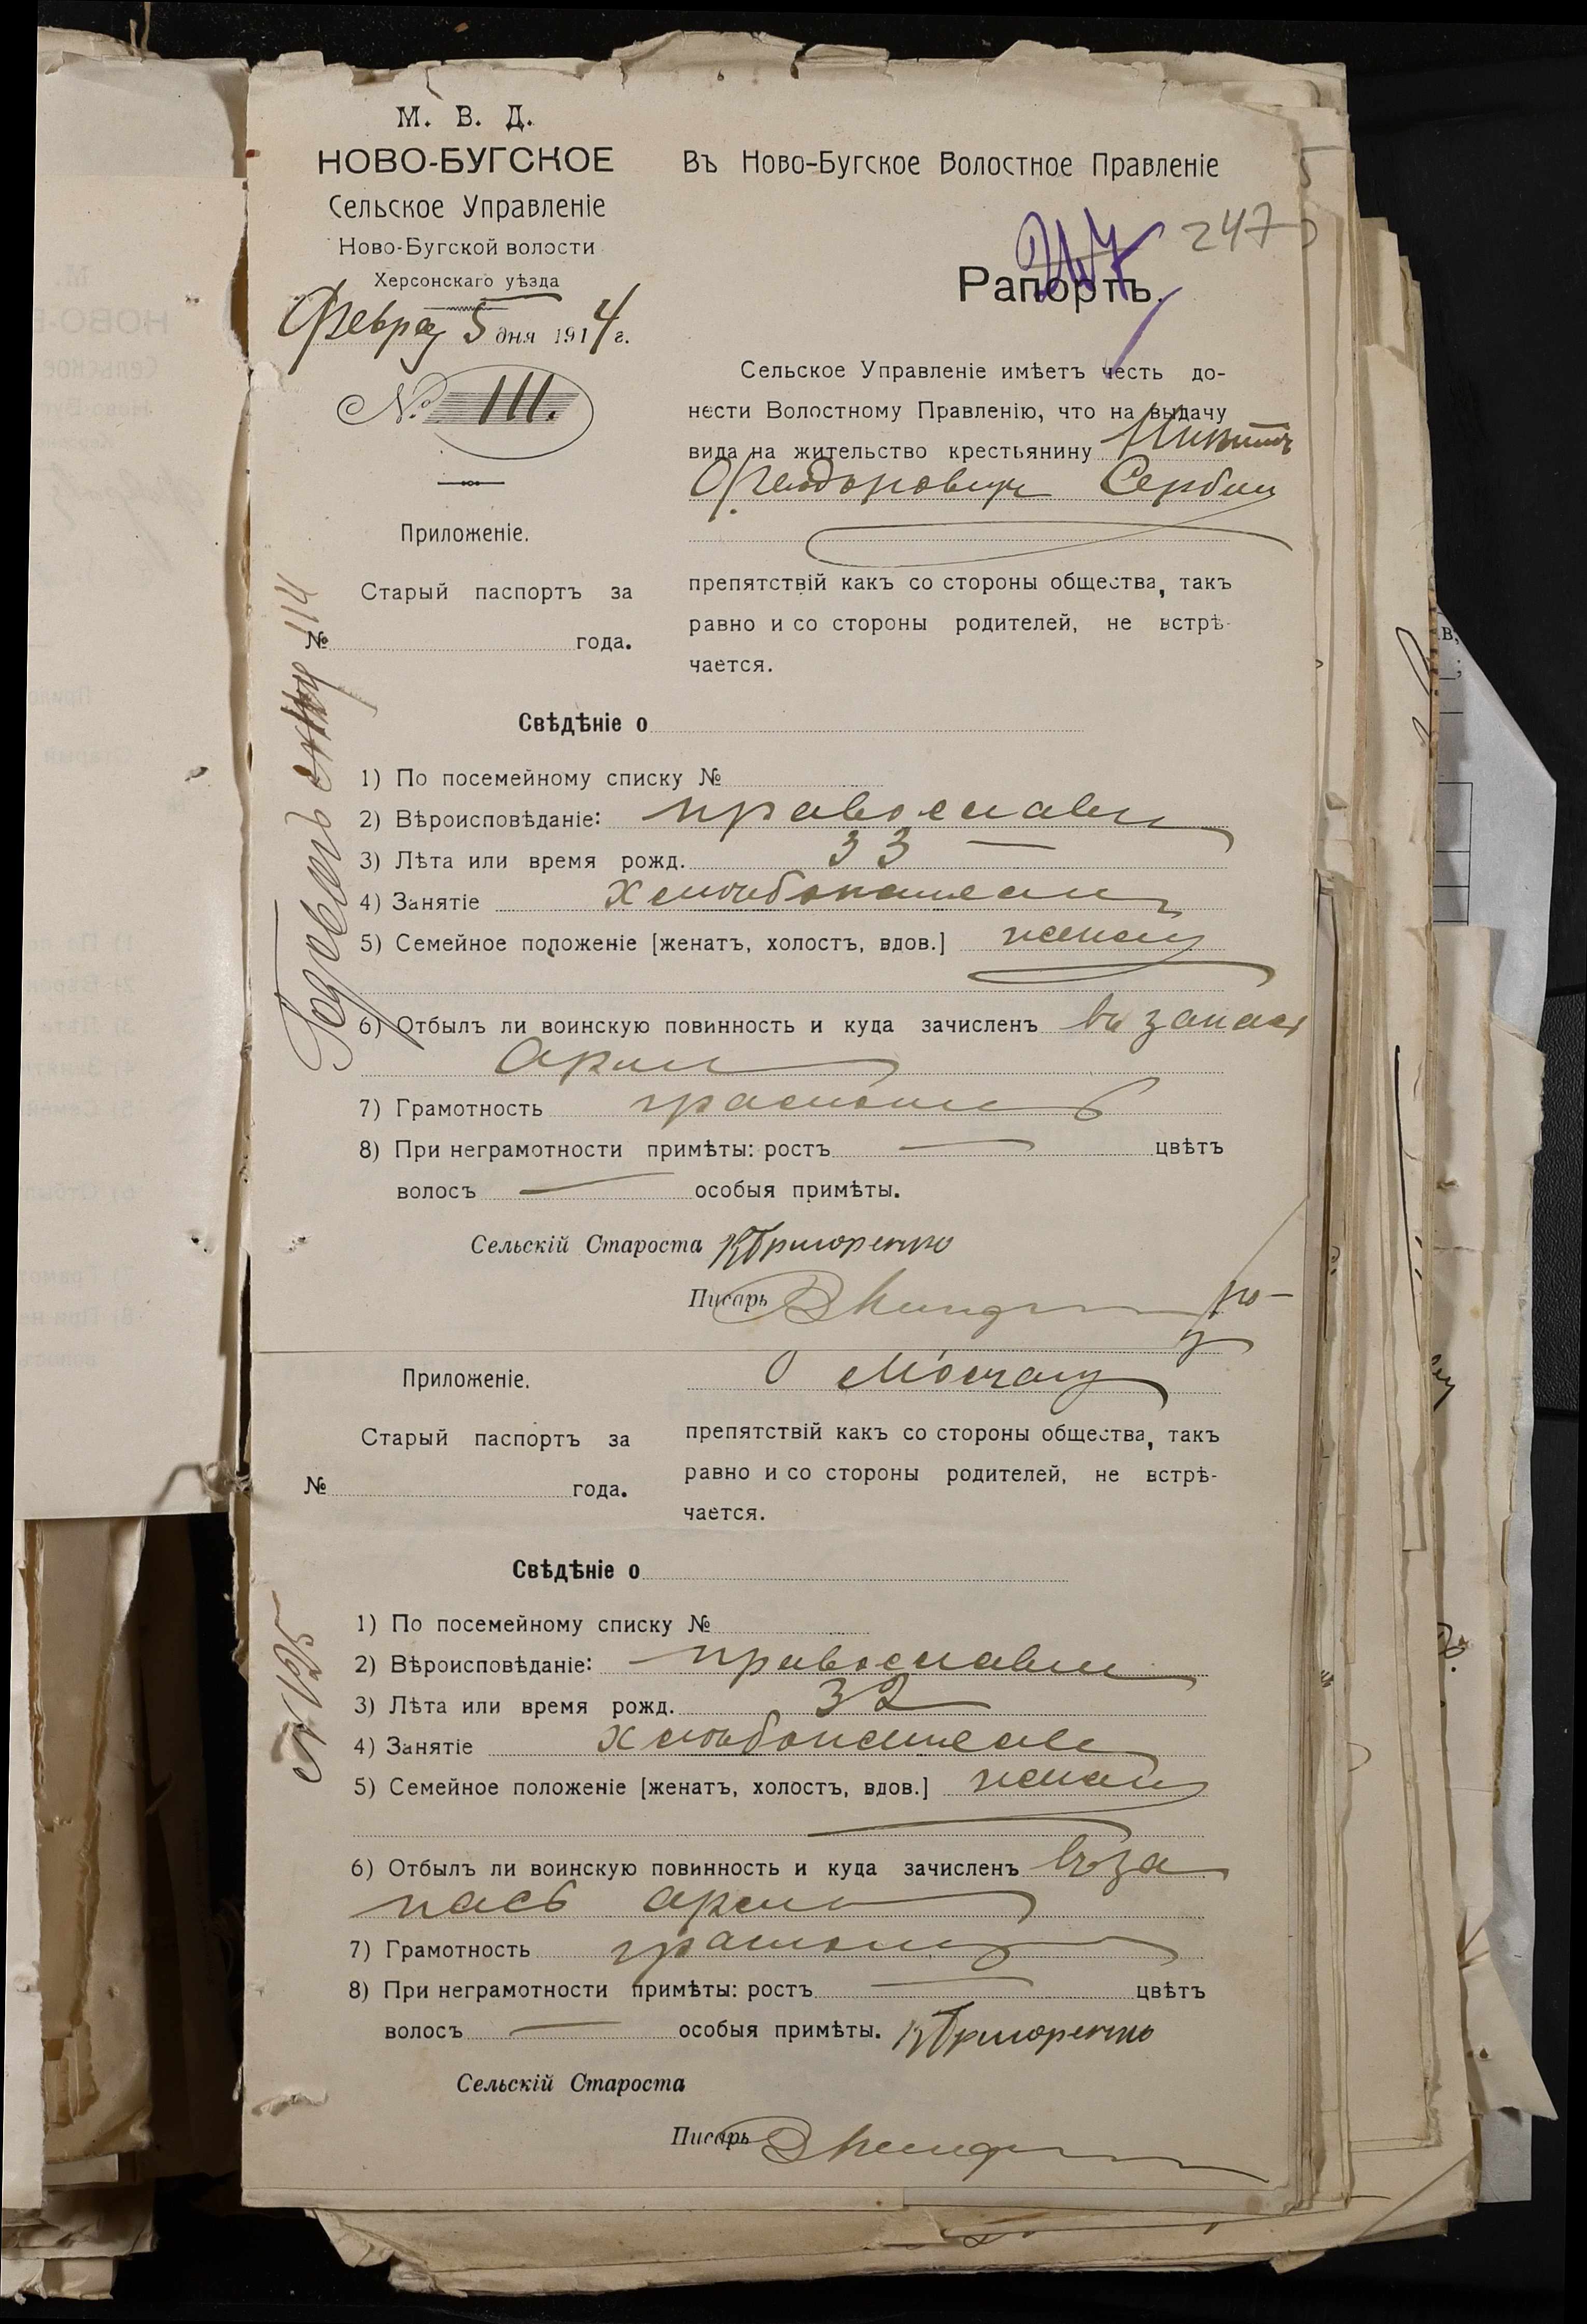 М. В. Д.
НОВО-БУГСКОЕ
Сельское Управленіе
Ново-Бугской волости
Херсонскаго уѣзда
Февра 5 дня 1914 г.
№ 111.
Приложеніе.
Старый паспортъ за
№ года.
Въ Ново-Бугское Волостное Правленіе
247
247
Рапортъ.
Сельское Управленіе имѣетъ честь до-
нести Волостному Правленію, что на выдачу
вида на жительство крестьянину Никит
Феодорович Серби
препятствій какъ со стороны общества, такъ
равно и со стороны родителей, не встрѣ-
чается.
Годовой 114
Свѣдѣніе о
1) По посемейному списку №
2) Вѣроисповѣданіе: православн
3) Лѣта или время рожд. 33 —
4) Занятіе Хлѣбопашец
5) Семейное положеніе [женатъ, холостъ, вдов.] женат
6) Отбылъ ли воинскую повинность и куда зачисленъ въ запасъ
Арміи
7) Грамотность грамотн
8) При неграмотности примѣты: ростъ — цвѣтъ
волосъ — особыя примѣты.
Сельскій Староста КГригоренко
Писарь
Приложеніе.
Старый паспортъ за
№ года.
препятствій какъ со стороны общества, такъ
равно и со стороны родителей, не встрѣ-
чается.
Свѣдѣніе о
№ 1625
1) По посемейному списку №
2) Вѣроисповѣданіе: православн
3) Лѣта или время рожд. 32
4) Занятіе Хлѣбопашец
5) Семейное положеніе [женатъ, холостъ, вдов.] женат
6) Отбылъ ли воинскую повинность и куда зачисленъ въ за
пасѣ арміи
7) Грамотность грамотн
8) При неграмотности примѣты: ростъ — цвѣтъ
волосъ — особыя примѣты. КГригоренко
Сельскій Староста
Писарь